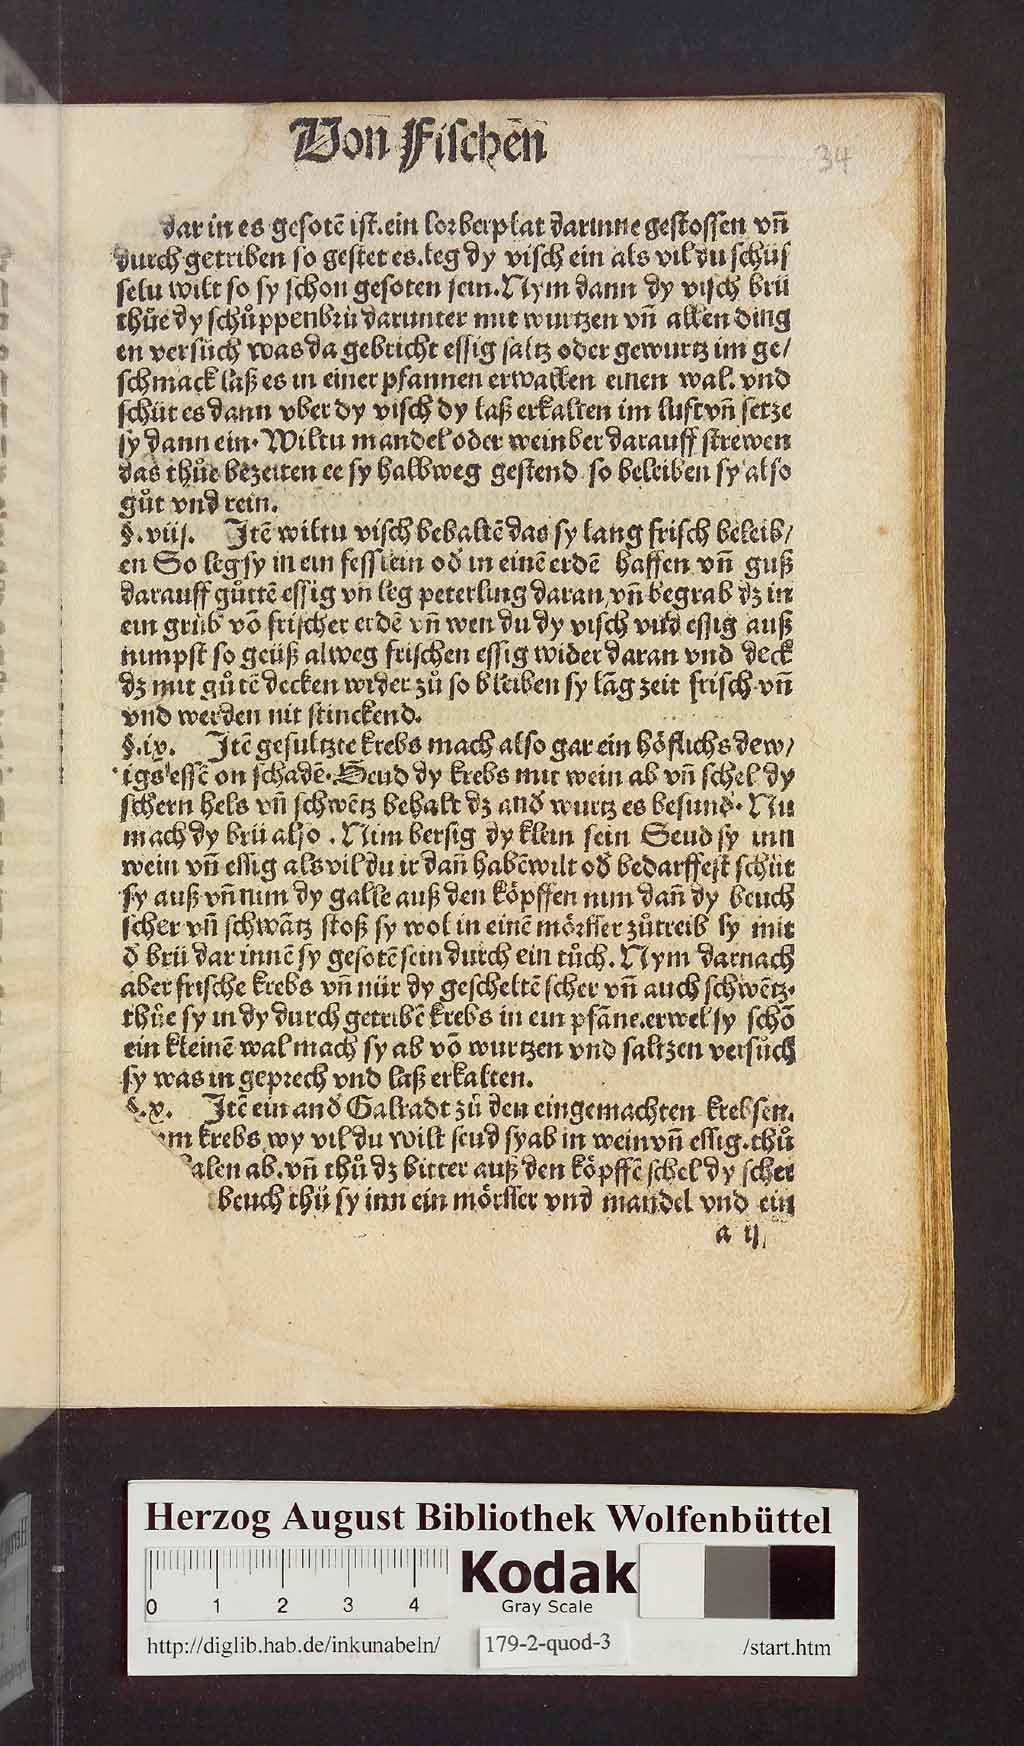 Von Fischēn
34
dar in es gesotē ist.ein lorberplat darinne gestossen vn̄
durch getriben so gestet es.leg dy visch ein als vil du schüs
seln wilt so sy schon gesoten sein.Nym dann dy visch brü
thůe dy schůppenbrü darunter mit wurtzen vn̄ allen ding
en versůch was da gebricht essig saltz oder gewurtz im ge/
schmack laß es in einer pfannen erwallen einen wal. vnd
schüt es dann vber dy visch dy laß erkalten im luft vn̄ setze
sy dann ein. Wiltu mandel oder weinber darauff strewen
das thůe bezeiten ee sy halbweg gestend so beleiben sy also
gůt vnd rein.
§.viij. Itē wiltu visch behaltē das sy lang frisch beleib/
en So leg sy in ein fesslein od̄ in einē erdē haffen vn̄ guß
darauff gůttē essig vn̄ leg peterling daran vn̄ begrab dz in
ein grůb vō frischer erdē vn̄ wen du dy visch vnd essig auß
nimpst so geüß alweg frischen essig wider daran vnd deck
dz mit gůtē decken wider zů so bleiben sy lāg zeit frisch vn̄
vnd werden nit stinckend.
§.ix. Itē gesultzte krebs mach also gar ein höflichs dew/
igs essē on schadē. Seud dy krebs mit wein ab vn̄ schel dy
schern hels vn̄ schwētz behalt dz and̄ wurtz es besund̄. Nu
mach dy brü also . Nim bersig dy klein sein Seud sy inn
wein vn̄ essig als vil du ir dan̄ habē wilt od̄ bedarffest schüt
sy auß vn̄ nim dy galle auß den köpffen nim dan̄ dy beuch
scher vn̄ schwātz stoß sy wol in einē mörsser zůtreib sy mit
d̄ brü dar innē sy gesotē sein durch ein tůch. Nym darnach
aber frische krebs vn̄ nür dy gescheltē scher vn̄ auch schwētz.
thůe sy in dy durch getribē krebs in ein pfāne.erwel sy schō
ein kleinē wal mach sy ab vō wurtzen vnd saltzen versůch
sy was in geprech vnd laß erkalten.
§.x. Itē ein and̄ Galradt zů den eingemachten krebsen.
ym krebs wy vil du wilt seud sy ab in wein vn̄ essig.thů
alen ab. vn̄ thů dz bitter auß den köpffē schel dy scher
beuch thü sy inn ein mörsser vnd mandel vnd ein
a ij
Herzog August Bibliothek Wolfenbüttel
0 1 2 3 4
Kodak
Gray Scale
http://diglib.hab.de/inkunabeln/ 179-2-quod-3 /start.htm